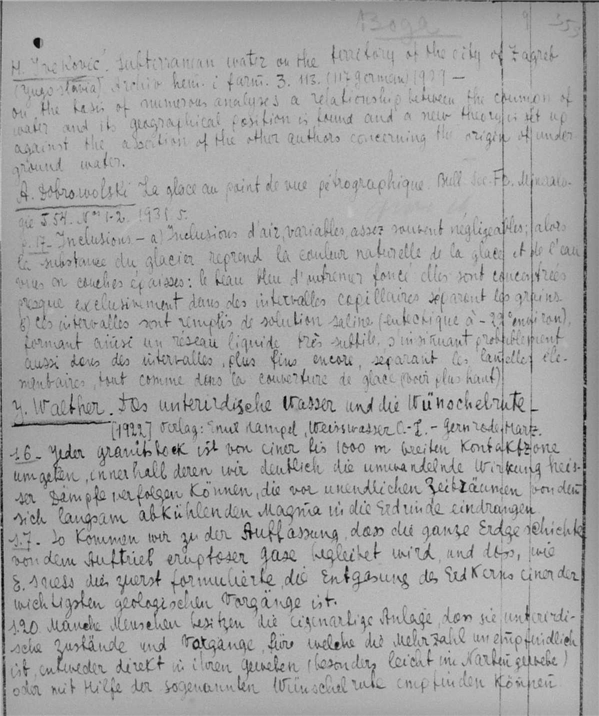 Вода 353
M. Ivekovič. Subterranean water on the territory of the city of Zagreb
(Yugo-slavia). Archiv hem. i farm. 3. 113. (117 german) 1929 –
on the basis of numerous analyses a relationship between the common of
water and its geographical position is found and a new theory is set up
against the assertion of the other authors concerning the origin of under-
ground water.
A. Dobrowolski La glace au point de vue pétrographique. Bull. Soc. Fr. Mineralo-
gie T. 54. Nos 1-2. 1931. 5.
p. 17. Inclusions – a) Inclusions d'air, variables, assez souvent négligeables; alors
la substance du glacier reprend la couleur naturelle de la glace et de l'eau
vues en couches épaisses: le beau bleu d'outremer foncé elles sont concentrées
presque exclusivement dans des intervalles capillaires séparent les grains.
b) Ces intervalles sont remplis de solution saline (eutectique à -22° environ),
formant ainsi un reseau liquide très subtile, s'insinuant probablement
aussi dans des intervalles, plus fins encore, séparant les lamelles élé-
mentaires, tout comme dans la couverture de glace (voir plus haut)
J. Walther. Das unterirdische Wasser und die Wünschelrute –
[1922] Verlag: Emil Hampel, Weisswasser O.-L. – Gernrode, Harz.
S. 6. – Jeder granitstock ist von einer bis 1000 m breiten Kontaktzone
umgeben, innerhalb deren wir deutlich die umwandelnde Wirkung heis-
ser Dämpfe verfolgen können, die vor unendlichen Zeiträumen von dem
sich langsam abkühlenden Magma in die Erdrinde eindrangen.
S. 7. So kommen wir zu der Auffassung, dass die ganze Erdgeschichte
von dem Auftrieb eruptoser gase begleitet wird, und dass, wie
E. Suess dies zuerst formulierte, die Entgasung des Erdkerns einer der
wichtigsten geologischen Vorgänge ist.
S. 20. Manche Menschen besitzen die eigenartige Anlage, dass sie unterirdi-
sche Zustände und Vorgänge, fürs welche die Mehrzahl unempfindlich
ist, entweder direkt in ihren geweben (besonders leicht im Narbengewebe)
oder mit Hilfe der sogenannten Wünschelrute empfinden können.